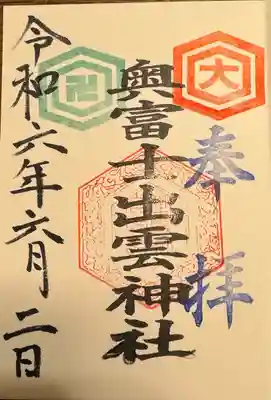 奉拝
大
奥富士出雲神社
卍
令和六年六月二日